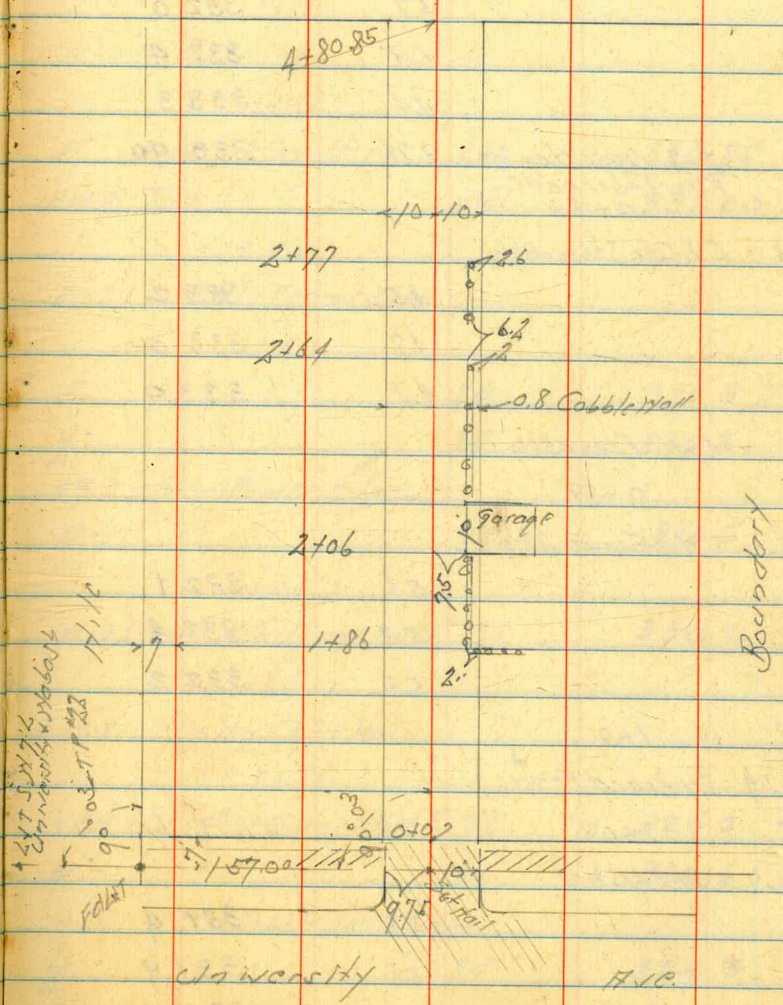 4+80.85
10 10
2+77
2.6
6.2
2+64
2
0.8 Cobble Wall
Garage
10
2+06
7.5
1+86
2.
Boundary
90°03
90°03
0+02
157.00
10
9.75
Set Nail
University Ave.